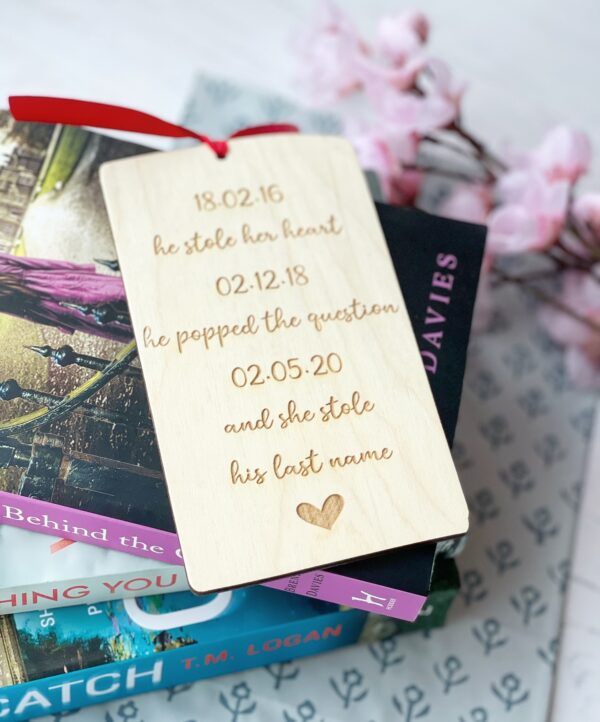 18.02.16
he stole her heart
02.12.18
he popped the question
02.05.20
and she stole
his last name
DAVIES
Behind the
DAVIES
H
HING YOU
CATCH T.M. LOGAN